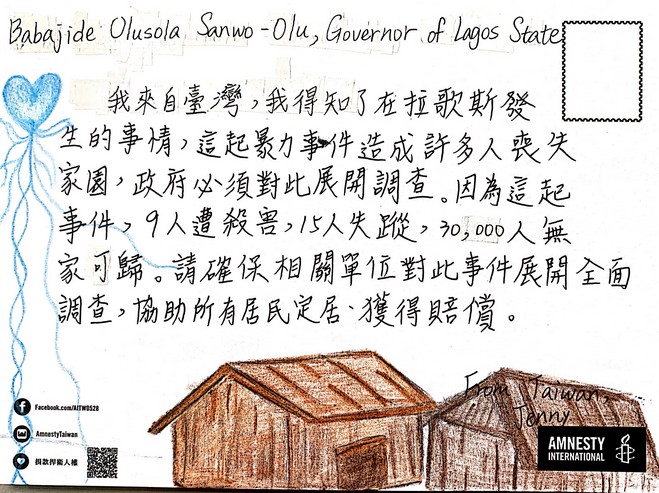 Babajide Olusola Sanwo-Olu, Governor of Lagos State
我來自臺灣，我得知了在拉歌斯發
生的事情，這起暴力事件造成許多人喪失
家園，政府必須對此展開調查。因為這起
事件，9人遭殺害，15人失蹤，30,000人無
家可歸。請確保相關單位對此事件展開全面
調查，協助所有居民定居、獲得賠償。
From Taiwan,
Jenny
Facebook.com/AITW0528
AmnestyTaiwan
捐款捍衛人權
AMNESTY
INTERNATIONAL